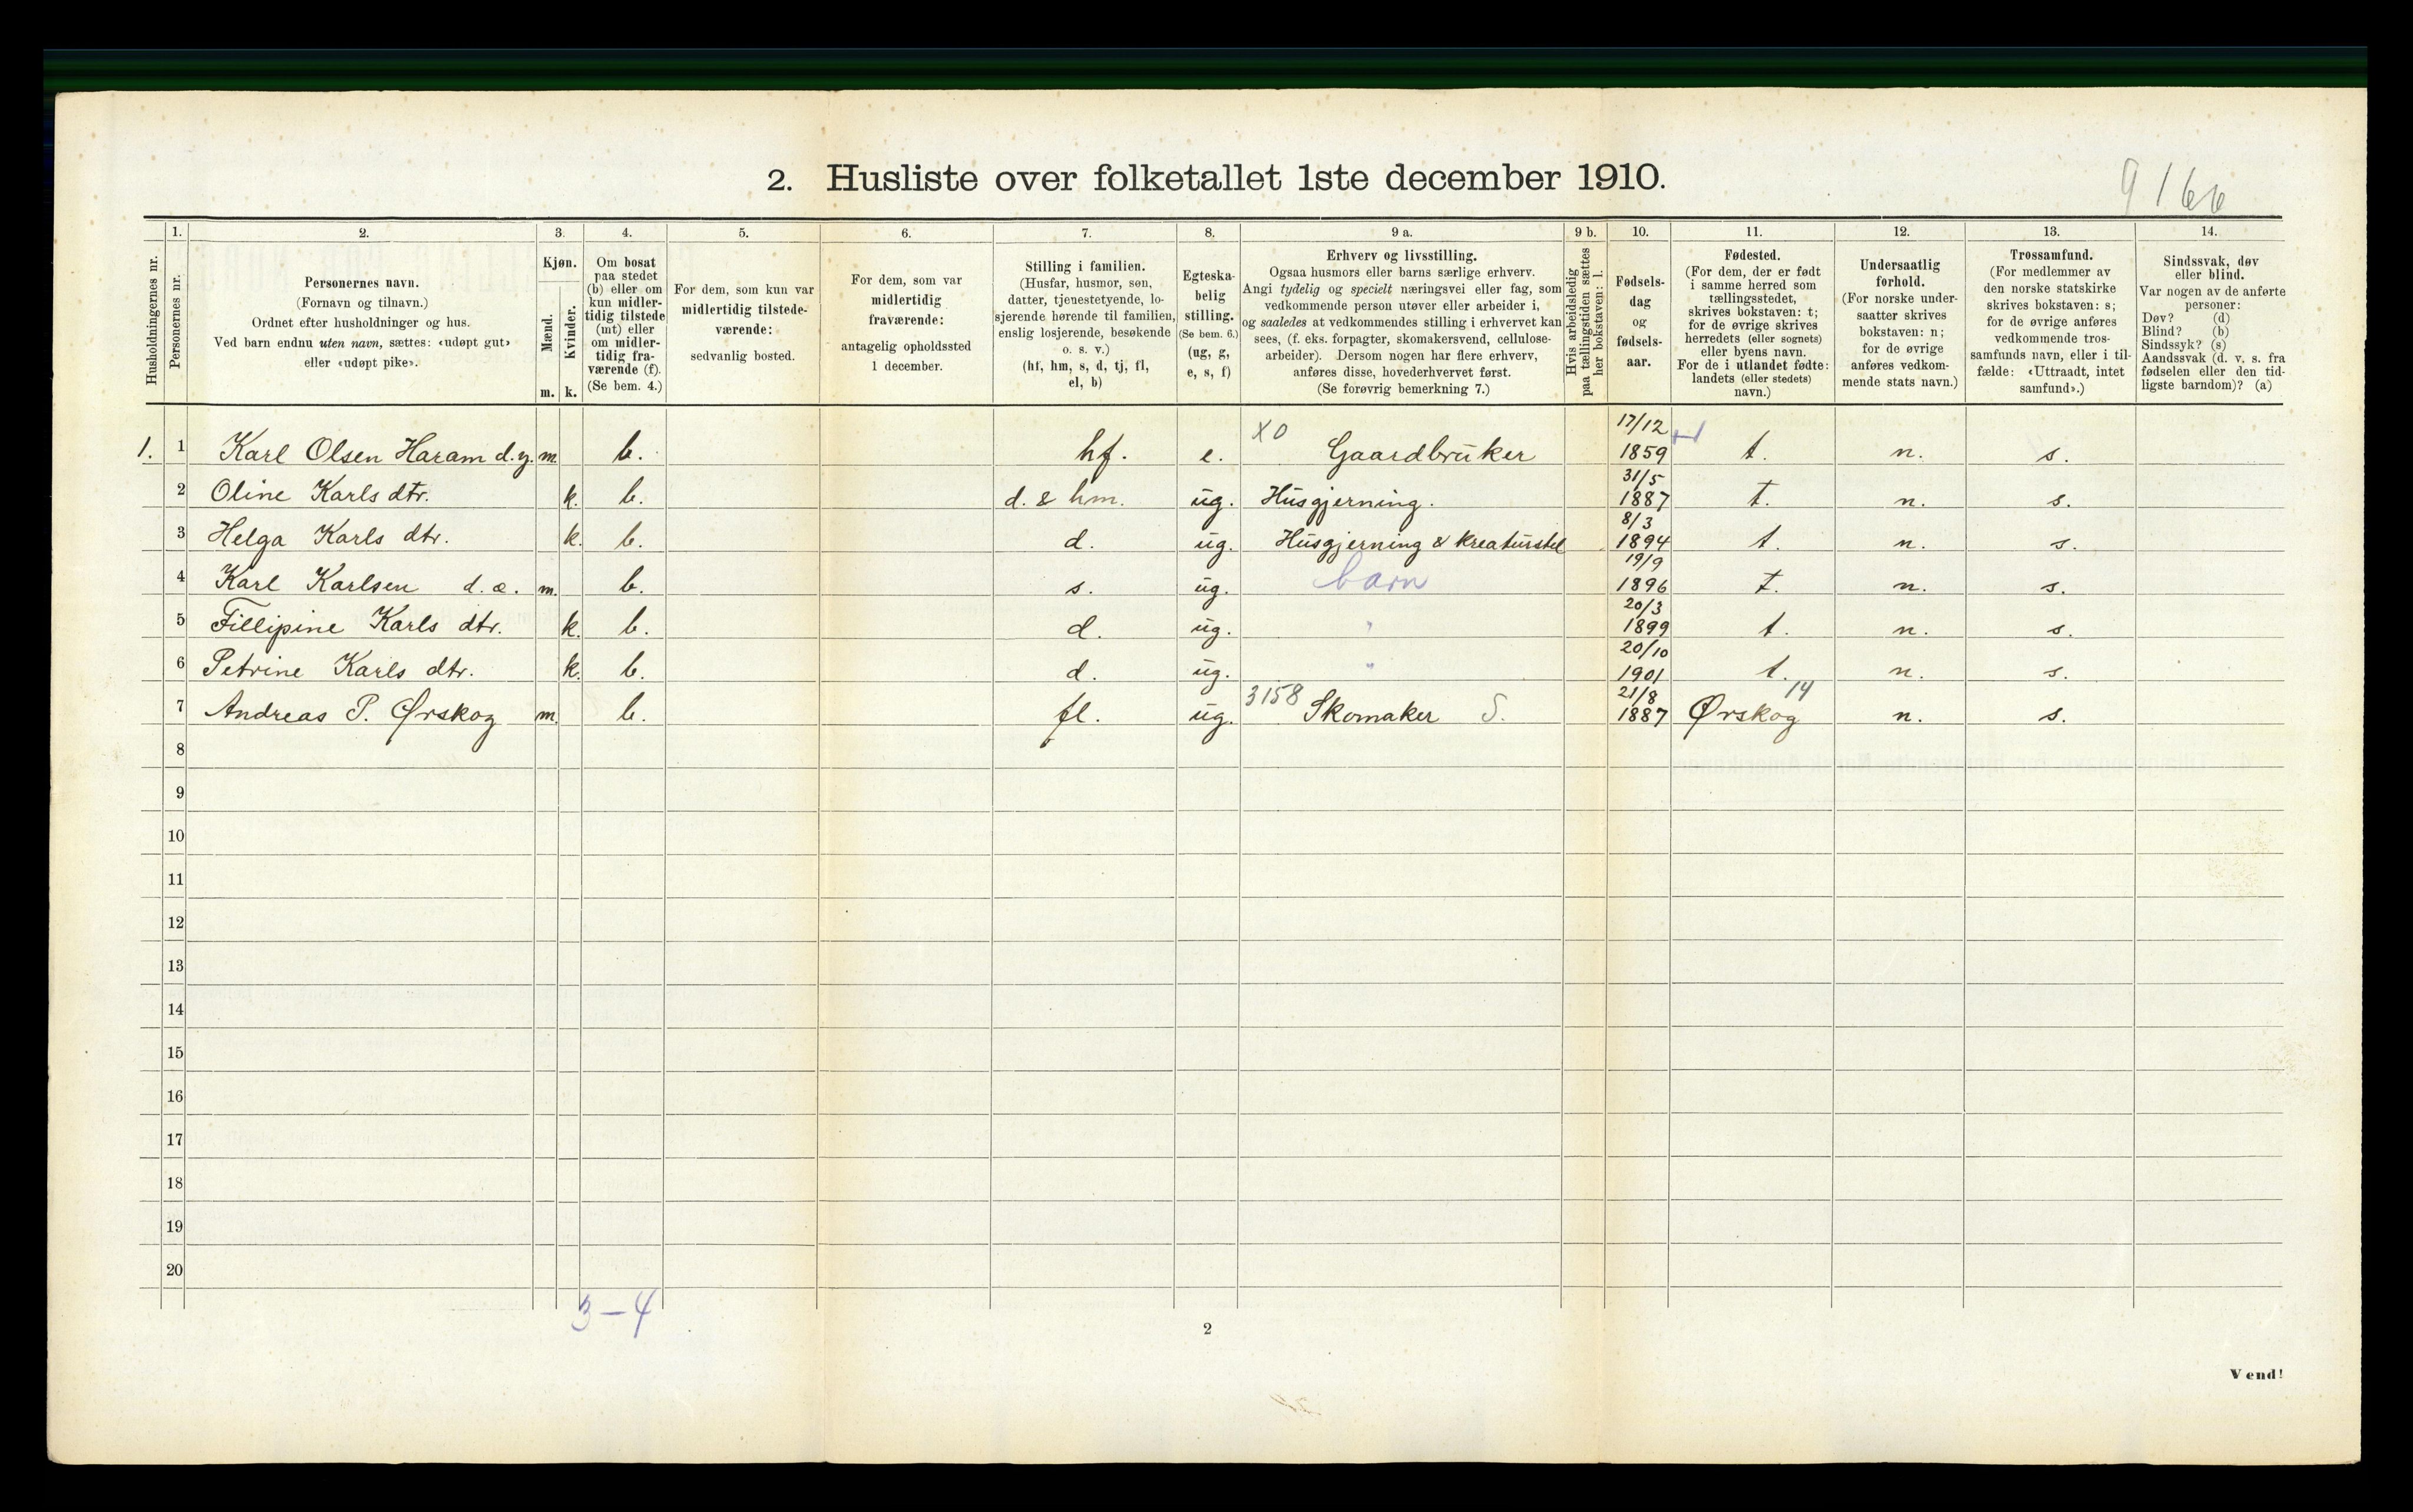 2. Husliste over folketallet 1ste december 1910.
9166
Husholdningernes nr.
1. Personernes nr.
2. Personernes navn.
(Fornavn og tilnavn.)
Ordnet efter husholdninger og hus.
Ved barn endnu uten navn, sættes: «udøpt gut»
eller «udøpt pike».
3. Kjøn.
Mænd. m.
Kvinder. k.
4. Om bosat
paa stedet
(b) eller om
kun midler-
tidig tilstede
(mt) eller
om midler-
tidig fra-
værende (f).
(Se bem. 4.)
5. For dem, som kun var
midlertidig tilstede-
værende:
sedvanlig bosted.
6. For dem, som var
midlertidig
fraværende:
antagelig opholdssted
1 december.
7. Stilling i familien.
(Husfar, husmor, søn,
datter, tjenestetyende, lo-
sjerende hørende til familien,
enslig losjerende, besøkende
o. s. v.)
(hf, hm, s, d, tj, fl,
el, b)
8. Egteska-
belig
stilling.
(Se bem. 6.)
(ug, g,
e, s, f)
9 a. Erhverv og livsstilling.
Ogsaa husmors eller barns særlige erhverv.
Angi tydelig og specielt næringsvei eller fag, som
vedkommende person utøver eller arbeider i,
og saaledes at vedkommendes stilling i erhvervet kan
sees, (f. eks. forpagter, skomakersvend, cellulose-
arbeider). Dersom nogen har flere erhverv,
anføres disse, hovederhvervet først.
(Se forøvrig bemerkning 7.)
9 b. Hvis arbeidsledig
paa tællingstiden sættes
her bokstaven: l.
10. Fødsels-
dag
og
fødsels-
aar.
11. Fødested.
(For dem, der er født
i samme herred som
tællingsstedet,
skrives bokstaven: t;
for de øvrige skrives
herredets (eller sognets)
eller byens navn.
For de i utlandet fødte:
landets (eller stedets)
navn.)
12. Undersaatlig
forhold.
(For norske under-
saatter skrives
bokstaven: n;
for de øvrige
anføres vedkom-
mende stats navn.)
13. Trossamfund.
(For medlemmer av
den norske statskirke
skrives bokstaven: s;
for de øvrige anføres
vedkommende tros-
samfunds navn, eller i til-
fælde: «Uttraadt, intet
samfund».)
14. Sindssvak, døv
eller blind.
Var nogen av de anførte
personer:
Døv? (d)
Blind? (b)
Sindssyk? (s)
Aandssvak (d. v. s. fra
fødselen eller den tid-
ligste barndom)? (a)
1. 1 Karl Olsen Haram d.y. m. b. hf. e. X0 Gaardbruker 17/12 1859 t. n. s.
2 Oline Karls dtr. k. b. d. & hm. ug. Husgjerning. 31/5 1887 t. n. s.
3 Helga Karls dtr. k. b. d. ug. Husgjerning & kreaturstel 8/3 1894 t. n. s.
4 Karl Karlsen d.æ. m. b. s. ug. barn 19/9 1896 t. n. s.
5 Fillipine Karls dtr. k. b. d. ug. " 20/3 1899 t. n. s.
6 Petrine Karls dtr. k. b. d. ug. " 20/10 1901 t. n. s.
7 Andreas P. Ørskog m. b. fl. ug. 3158 Skomaker S. 21/8 1887 Ørskog 14 n. s.
8
9
10
11
12
13
14
15
16
17
18
19
20
3-4
2
Vend!